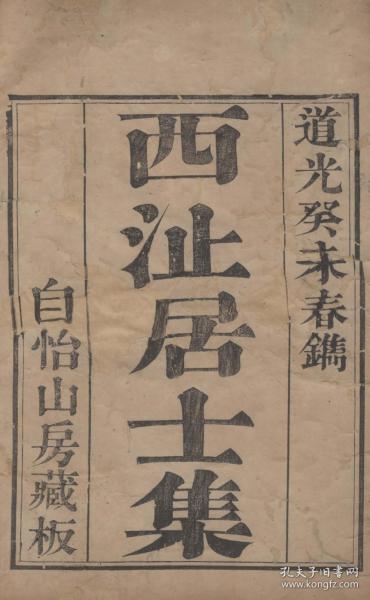 道光癸未春鐫
西沚居士集
自怡山房藏板
孔夫子旧书网
www.kongfz.com